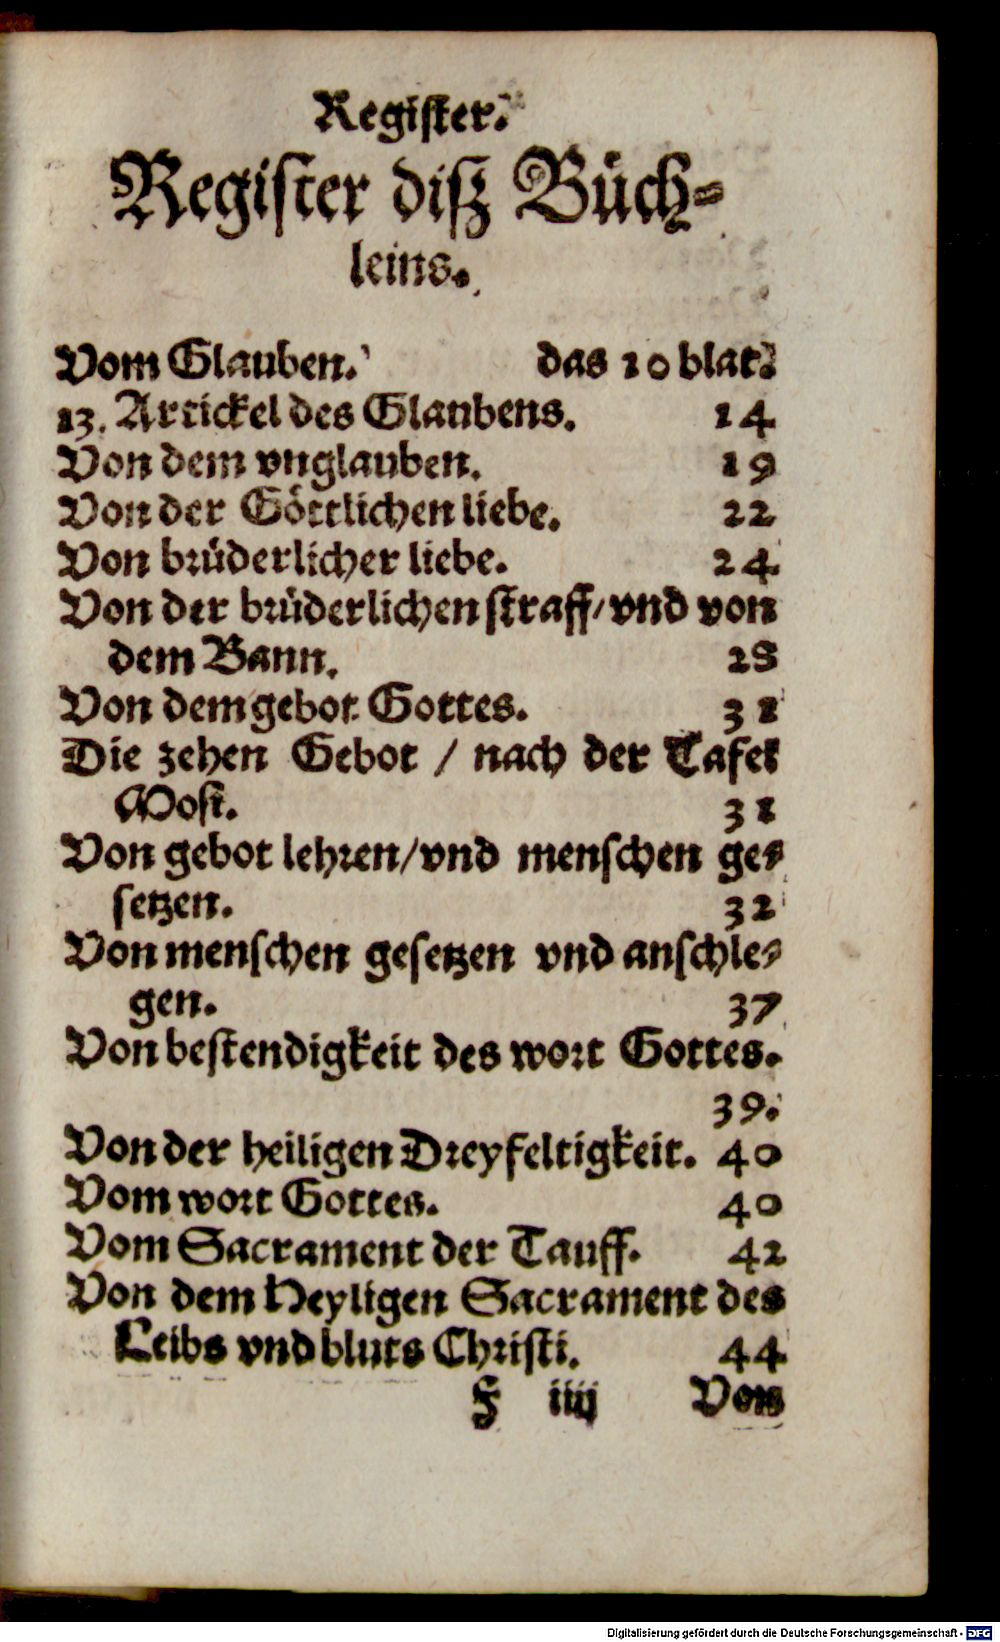 Register.
Register diſz Büch⸗
leins.
Vom Glauben. das 10 blat.
13. Artickel des Glaubens. 14
Von dem vnglauben. 19
Von der Göttlichen liebe. 22
Von brüderlicher liebe. 24
Von der brüderlichen ſtraff/ vnd von
dem Bann. 28
Von dem gebot Gottes. 31
Die zehen Gebot / nach der Tafel
Moſi. 31
Von gebot lehren/ vnd menſchen ge⸗
ſetzen. 32
Von menſchen geſetzen vnd anſchle⸗
gen. 37
Von beſtendigkeit des wort Gottes.
39.
Von der heiligen Dreyfeltigkeit. 40
Vom wort Gottes. 40
Vom Sacrament der Tauff. 42
Von dem Heyligen Sacrament des
Leibs vnd bluts Chriſti. 44
F iiij Von
Digitalisierung gefördert durch die Deutsche Forschungsgemeinschaft - DFG